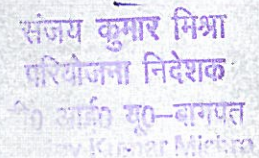 संजय कुमार मिश्रा
परियोजना निदेशक
पी0 आई0 यू0-बागपत
Sanjay Kumar Mishra